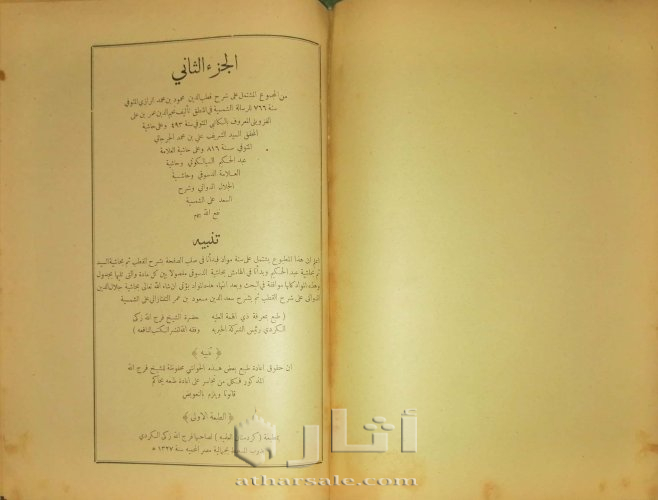 الجزء الثاني
من المجموع المشتمل على شرح قطب الدين محمود بن محمد الرازي المتوفي
سنة ٧٦٦ للرسالة الشمسية في المنطق تأليف نجم الدين عمر بن علي
القزويني المعروف بالكاتبي المتوفي سنة ٤٩٣ وعلى حاشية
المحقق السيد الشريف علي بن محمد الجرجاني
المتوفي سنة ٨١٦ وعلى حاشية العلامة
عبد الحكيم السيالكوتي وحاشية
العلامة الدسوقي وحاشية
الجلال الدواني وشرح
السعد على الشمسية
نفع الله بهم
تنبيه
اعلم ان هذا المطبوع يشتمل على ستة مواد فبدأنا في صلب الصفحة بشرح القطب ثم بحاشية السيد
ثم بحاشية عبد الحكيم وبدأنا في الهامش بحاشية الدسوقي مفصولا بين كل مادة والتي تليها بجدول
وهذه المواد كلها موافقة في البحث وبعد انتهاء هذه المواد يؤتى ان شاء الله تعالى بحاشية جلال الدين
الدواني على شرح القطب ثم بشرح سعد الدين مسعود بن عمر التفتازاني على الشمسية
( طبع بمعرفة ذي الهمة العلية حضرة الشيخ فرج الله زكي
الكردي رئيس الشركة الخيرية وفقه الله لنشر الكتب النافعه )
﴿ تنبيه ﴾
ان حقوق اعادة طبع بعض هذه الحواشي محفوظة للشيخ فرج الله
المذكور فكل من تجاسر على اعادة طبعه يحاكم
قانونا ويلزم بالتعويض
﴿ الطبعة الاولى ﴾
بمطبعة ( كردستان العلمية ) لصاحبها فرج الله زكي الكردي
بدرب بجمالية مصر المحمية سنة ١٣٢٧ ه
أثار
atharsale.com